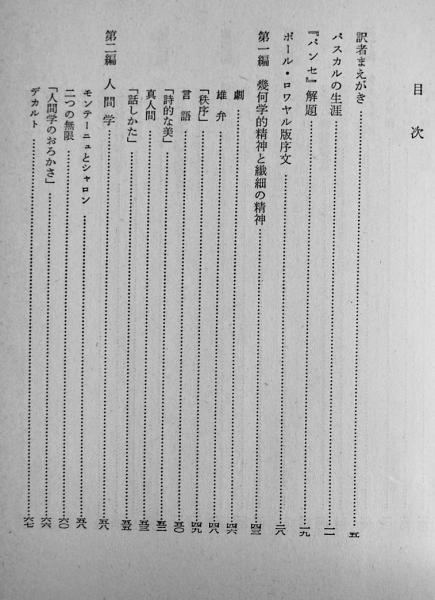 目次
訳者まえがき……五
パスカルの生涯……一一
『パンセ』解題……一九
ポール・ロワヤル版序文……二八
第一編 幾何学的精神と繊細の精神……四三
劇……四六
雄弁……四八
「秩序」……四九
言語……五〇
「詩的な美」……五二
真人間……五三
「話しかた」……五五
第二編 人間学……五八
モンテーニュとシャロン……五八
二つの無限……六〇
「人間学のおろかさ」……六六
デカルト……六七